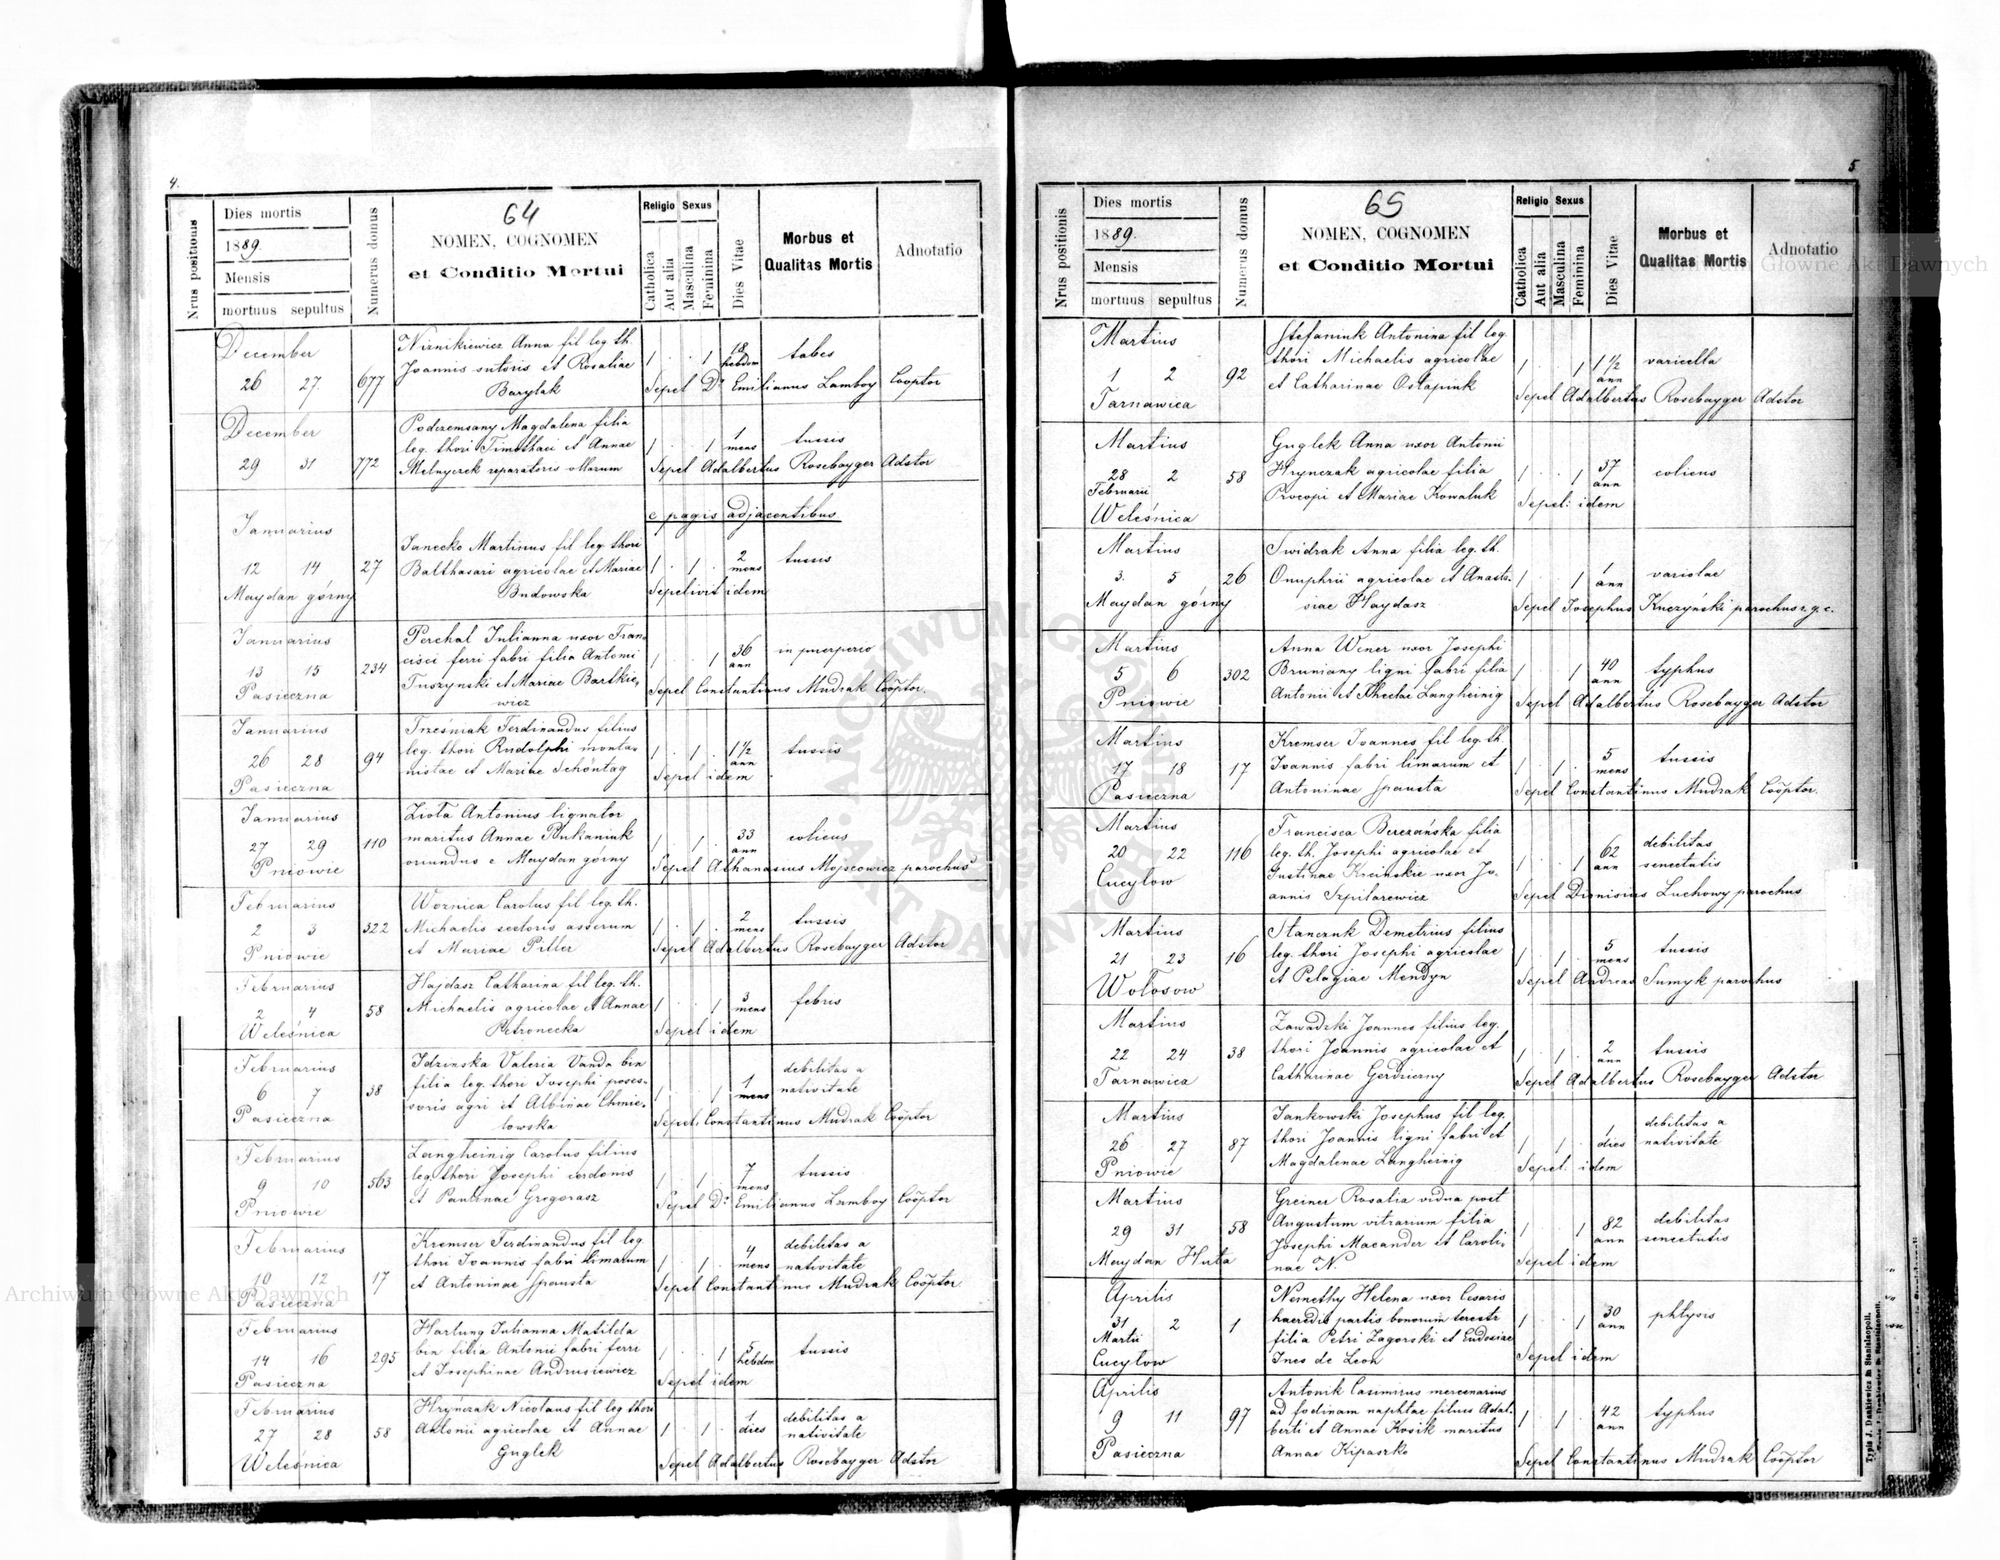 4.
64
Nrus positionis
Dies mortis
1889.
Mensis
mortuus sepultus
Numerus domus
NOMEN, COGNOMEN
et Conditio Mortui
Religio Sexus
Catholica
Aut alia
Masculina
Feminina
Dies Vitae
Morbus et
Qualitas Mortis
Adnotatio
December
26 27. 677
Niznikiewicz Anna fil leg th.
Joannis sutoris et Rosaliae
Barylak
1 . . 1 18 hebdom tabes
Sepel Dr Emilianus Lamboy Cooptor
December
29 31 772
Podziemsany Magdalena filia
leg. thori Timothaei et Annae
Melnyczek reparatoris ollarum
1 . . 1 1 mens tussis
Sepel Adalbertus Rosebayger Adstor
e pagis adjacentibus
Januarius
12 14 27
Maydan górny
Janecko Martinus fil leg. thori
Balthasari agricolae et Mariae
Budowska
1 . 1 . 2 mens tussis
Sepelivit idem
Januarius
13 15 234
Pasieczna
Perchal Julianna uxor Fran-
cisci ferri fabri filia Antonii
Tuszynski et Mariae Bartkie-
wicz
1 . . 1 36 ann in puerperio
Sepel Constantinus Mudrak Cooptor.
Januarius
26 28 94
Pasieczna
Trześniak Ferdinandus filius
leg. thori Rudolphi monta-
nistae et Mariae Schöntag
1 . 1 . 1 1/2 ann tussis
Sepel idem
Januarius
27 29 110
Pniowie
Ziola Antonius lignator
maritus Annae Bukaniuk
oriundus e Maydan górny
1 . 1 . 33 ann colicus
Sepel Athanasius Mojseowicz parochus
Februarius
2 3 322
Pniowie
Woznica Carolus fil leg. th.
Michaelis sectoris asserum
et Mariae Piller
1 . 1 . 2 mens tussis
Sepel Adalbertus Rosebayger Adstor
Februarius
2 4 58
Weleśnica
Hajdasz Catharina fil leg. th.
Michaelis agricolae et Annae
Petronecka
1 . . 1 3 mens febris
Sepel idem
Februarius
6 7 38
Pasieczna
Idzinska Valeria Vanda bin
filia leg. thori Josephi posses-
soris agri et Albinae Chmie-
lowska
1 . . 1 1 mens debilitas a
nativitate
Sepel. Constantinus Mudrak Cooptor
Februarius
9 10 563
Pniowie
Langheinig Carolus filius
leg. thori Josephi cerdonis
et Paulinae Gregorasz
1 . 1 . 7 mens tussis
Sepel Dr Emilianus Lamboy Cooptor
Februarius
10 12 17
Pasieczna
Kremser Ferdinandus fil leg
thori Joannis fabri limarum
et Antoninae Spausta
1 . 1 . 4 mens debilitas a
nativitate
Sepel Constantinus Mudrak Cooptor
Februarius
14 16 295
Pasieczna
Hartung Julianna Matilda
bin filia Antonii fabri ferri
et Josephinae Andrusiewicz
1 . . 1 5 hebdom tussis
Sepel idem
Februarius
27 28 58
Weleśnica
Hrynczak Nicolaus fil leg thori
Antonii agricolae et Annae
Guglek
1 . 1 . 1 dies debilitas a
nativitate
Sepel Adalbertus Rosebayger Adstor
5
65
Nrus positionis
Dies mortis
1889.
Mensis
mortuus sepultus
Numerus domus
NOMEN, COGNOMEN
et Conditio Mortui
Religio Sexus
Catholica
Aut alia
Masculina
Feminina
Dies Vitae
Morbus et
Qualitas Mortis
Adnotatio
Martius
1 2 92
Tarnawica
Stefaniuk Antonina fil leg.
thori Michaelis agricolae
et Catharinae Ostapiuk
1 . . 1 1 1/2 ann varicella
Sepel Adalbertus Rosebayger Adstor
Martius
28 2 58
Februarii
Weleśnica
Guglek Anna uxor Antonii
Hrynczak agricolae filia
Procopi et Mariae Kowaluk
1 . . 1 37 ann colicus
Sepel: idem
Martius
3. 5 26
Maydan górny
Swidrak Anna filia leg. th.
Onuphrii agricolae et Anasta-
siae Haydasz
1 . . 1 1 ann variolae
Sepel Josephus Kuczyński parochus r. g. c.
Martius
5 6 302
Pniowie
Anna Wener uxor Josephi
Bruniany ligni fabri filia
Antonii et Theclae Langheinig
1 . . 1 40 ann typhus
Sepel Adalbertus Rosebayger Adstor
Martius
17 18 17
Pasieczna
Kremser Joannes fil leg. th
Joannis fabri limarum et
Antoninae Spausta
1 . 1 . 5 mens tussis
Sepel Constantinus Mudrak Cooptor.
Martius
20 22 116
Cucylow
Francisca Berezańska filia
leg. th. Josephi agricolae et
Justinae Krcińskie uxor Jo-
annis Szpilarewicz
1 . . 1 62 ann debilitas
senectutis
Sepel Dionisius Luchowy parochus
Martius
21 23 16
Wołosow
Stanczuk Demetrius filius
leg. thori Josephi agricolae
et Pelagiae Mendyn
1 . 1 . 5 mens tussis
Sepel Andreas Sumyk parochus
Martius
22 24 38
Tarnawica
Zawadzki Joannes filius leg.
thori Joannis agricolae et
Catharinae Gerdzierny
1 . 1 . 2 ann tussis
Sepel Adalbertus Rosebayger Adstor
Martius
26 27 87
Pniowie
Jankowski Josephus fil leg.
thori Joannis ligni fabri et
Magdalenae Langheinig
1 . 1 . 1 dies debilitas a
nativitate
Sepel. idem
Martius
29 31 58
Maydan Huta
Greiner Rosalia vidua post
Augustum vitrarium filia
Josephi Macander et Caroli-
nae N.
1 . . 1 82 ann debilitas
senectutis
Sepel idem
Aprilis
31 2 1
Martii
Cucylow
Nemethy Helena uxor Cesaris
haeredis partis bonorum terestr
filia Petri Zagorski et Eudosiae
Ines de Leon
1 . . 1 30 ann phtysis
Sepel idem
Aprilis
9 11 97
Pasieczna
Antonik Casimirus mercenarius
ad fodinam naphtae filius Adal-
berti et Annae Kosik maritus
Annae Kipaszko
1 . 1 . 42 ann typhus
Sepel Constantinus Mudrak Cooptor
Typis J. Dankiewicz in Stanislaopoli.
Archiwum Główne Akt Dawnych
Archiwum Główne Akt Dawnych
ARCHIWUM GŁÓWNE AKT DAWNYCH